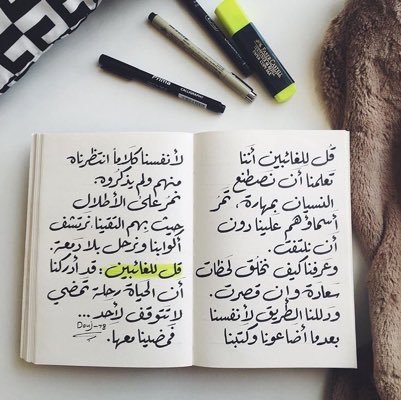 قل للغائبين أننا
تعلمنا أن نصطنع
النسيان بمهارة. تمرّ
أسماؤهم علينا دون
أن نلتفت.
وعرفنا كيف نخلق لحظات
سعادة وإن قصرت.
ودللنا الطريق لأنفسنا
بعدما أضاعونا وكتبنا
لأنفسنا كلاماً انتظرناه
منهم ولم يذكروه.
نمرّ على الأطلال
حيث بهم التقينا. نرتشف
أكوابنا ونرحل بلا دمعة.
قل للغائبين: قد أدركنا
أن الحياة رحلة تمضي
لا تتوقف لأحد...
فمضينا معها.